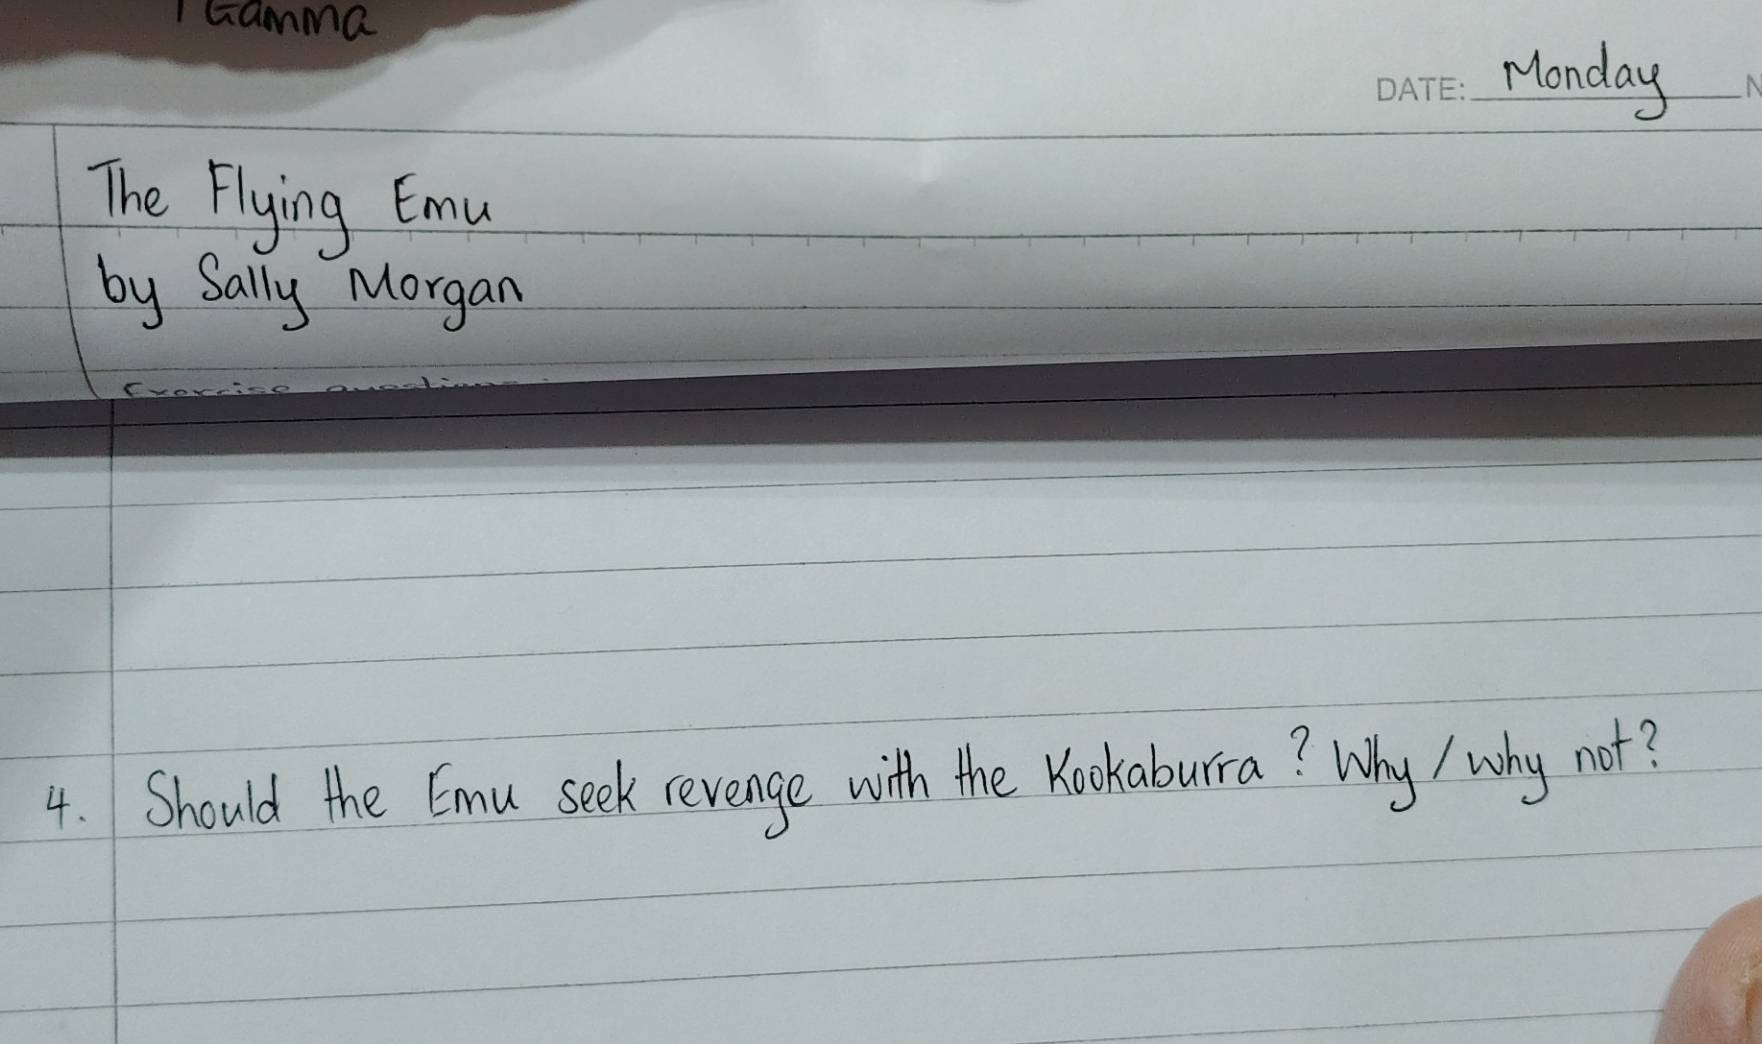 Gamma
DATE: Monday
The Flying Emu
by Sally Morgan
Exercise questions
4. Should the Emu seek revenge with the Kookaburra? Why / why not?